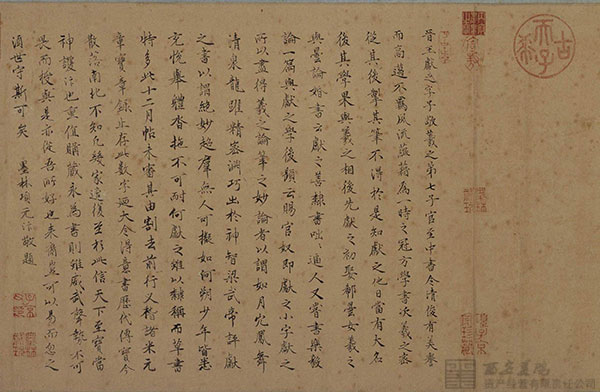 古希天子
昔王獻之字子敬羲之第七子官至中書令清俊有美譽
而高邁不羈風流蘊藉為一時之冠方學書次羲之密
從其後掣其筆不得於是知獻之他日當有大名
後其學果與羲之相後先獻之初娶郗曇女羲之
與曇論婚書云獻之善隸書咄咄逼人又嘗書樂毅
論一篇與獻之學後題云賜官奴即獻之小字獻之
所以盡得羲之論筆之妙論者以謂如丹穴鳳舞
清泉龍躍精密淵巧出於神智梁武帝評獻
之書以謂絕妙超群無人可擬如河朔少年皆悉
充悅舉體沓拖不可耐何獻之雖以隸稱而草書
特多此十二月帖未審其由割去前行又楷諸米元
章寶章錄止存此數字迺大令得意書歷代傳寶今
散落南北不知凡幾家遠後至於此信天下至寶當
神護訶也重值購藏永為書則雖威武聲勢不可
畏而授與是亦從吾所好也來裔豈可以易而忽之
須世守斯可矣 墨林項元汴敬題